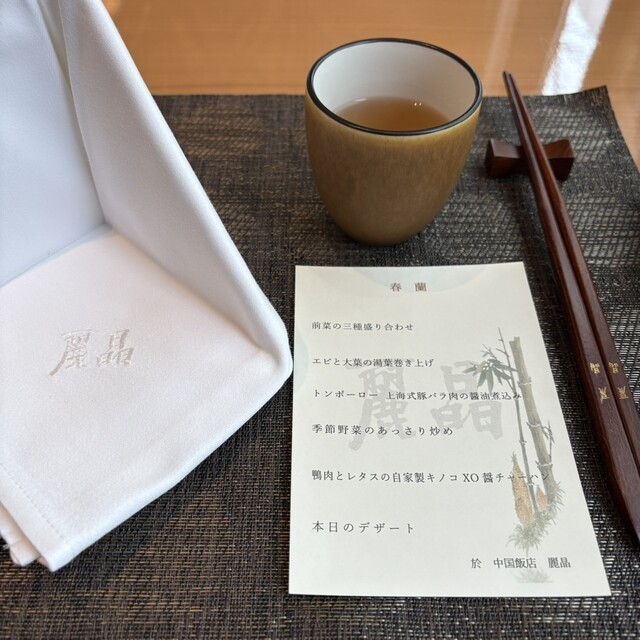 麗晶
春蘭
前菜の三種盛り合わせ
エビと大葉の湯葉巻き上げ
トンポーロー 上海式豚バラ肉の醤油煮込み
麗晶
季節野菜のあっさり炒め
鴨肉とレタスの自家製キノコ XO 醤チャーハン
本日のデザート
於 中国飯店 麗晶
麗晶
麗晶